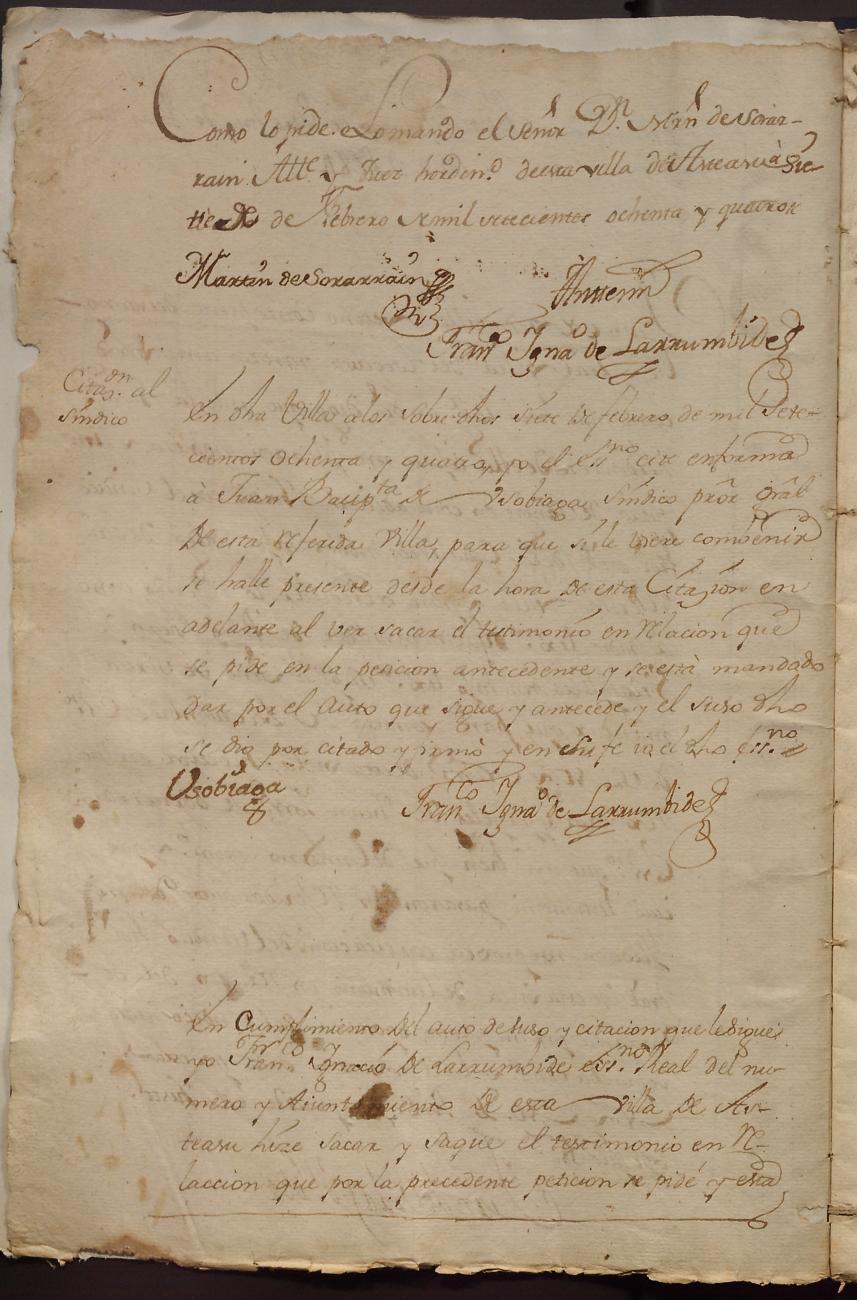 Como lo pide. Lo mando el señor Dn. Mrn de Sorar-
rain Alle. y Juez hordino. de esta villa de Asteasu à Sie-
tte de Febrero de mil setecientos ochenta y quatro
Martin de Sorarrain
Antemi
Franco. Ignao. de Larrumbide
Citazon. al
síndico
En dha Villa a los sobre dhos siete de febrero de mil sete-
cientos ochenta y quatro, yo el essno cite en forma
à Juan Baupta de Usobiaga síndico prõr gral
De esta referida Villa, para que si le biere combenir
se halle presente desde la hora de esta Citazion en
adelante al ver sacar el testimonio en relacion que
se pide en la peticion antecedente y se està mandado
dar por el auto que sigue y antecede y el suso dho
se dio por citado y firmò y en su fe io el dho essno.
Usobiaga
Franco Ignao de Larrumbide
En Cumplimiento del auto de suso y citacion que le sigue
yo Franco. Ignacio de Larrumbide essno. Real del nu-
mero y Aiuntamiento de esta villa de As-
teasu hize sacar y saque el testimonio en Re-
laccion que por la precedente peticion se pide y está